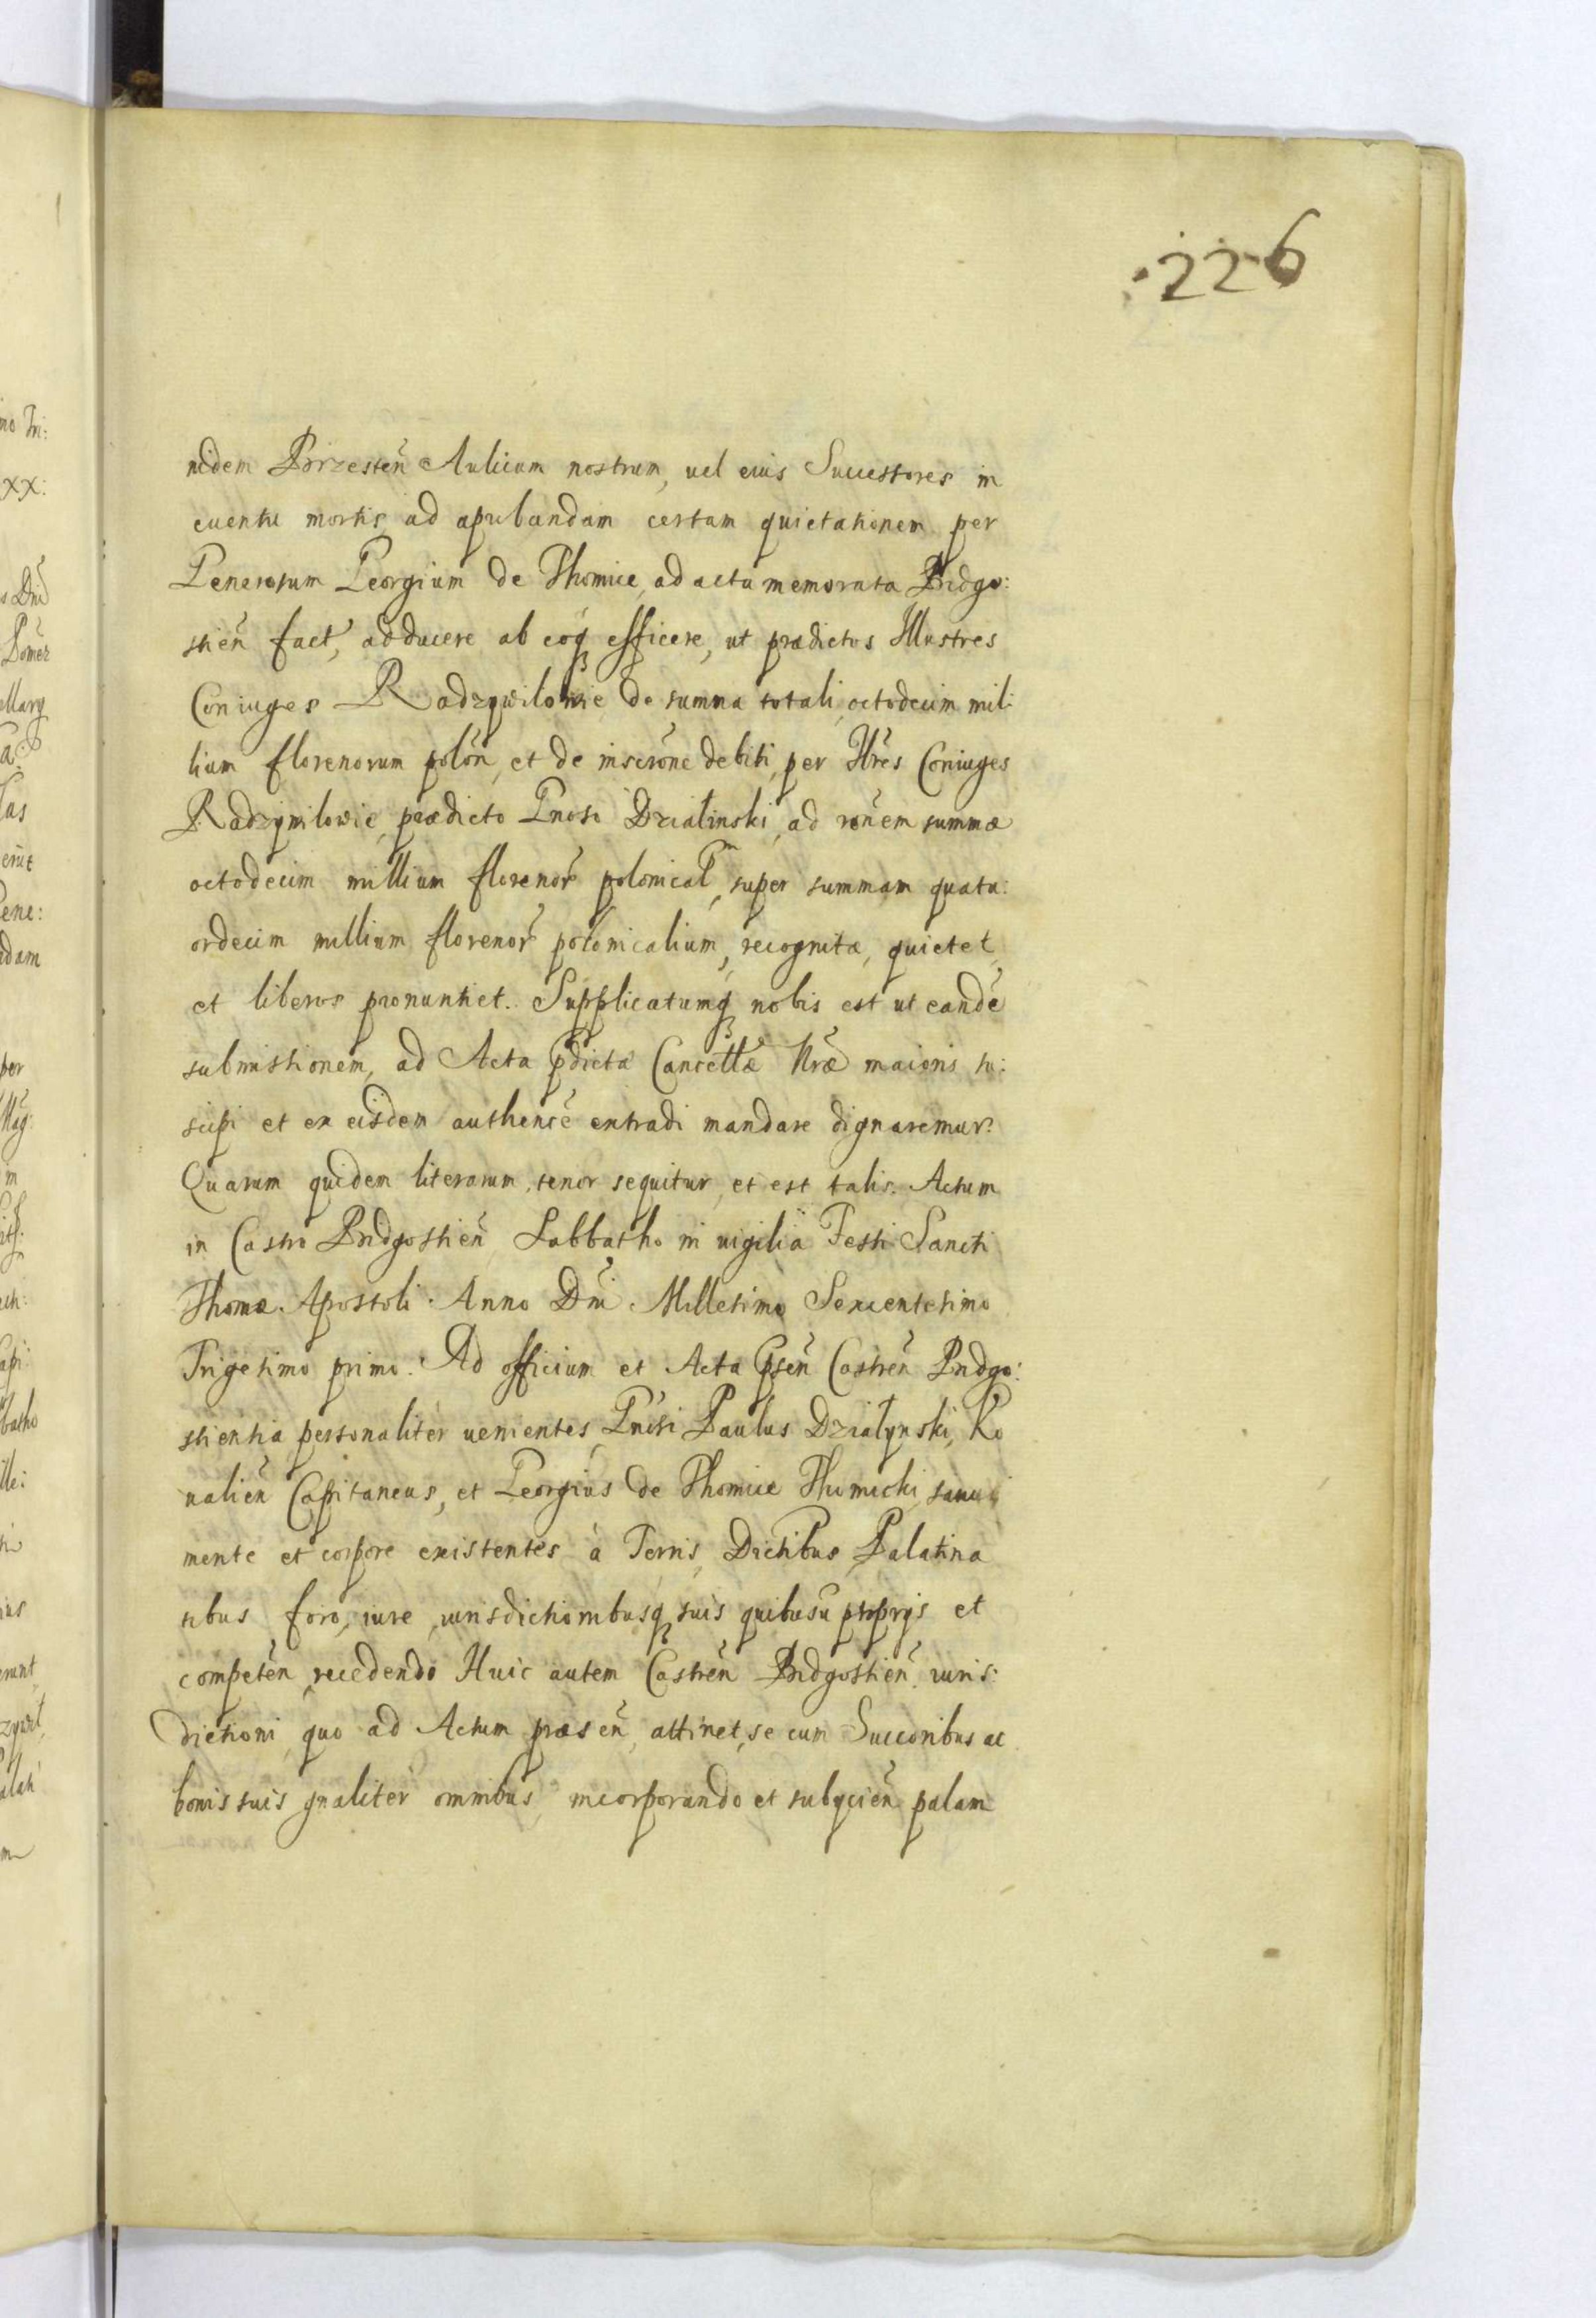 226
nidem Brzesteñ Aulicum nostrum, uel eius Successores in
euentu mortis ad aprobandam certam quietationem per
Generosum Georgium de Thomice, ad acta memorata Bidgo:
stień fact, adducere ab eoq efficere, ut prædictos Illustres
Coniuges Radzywilowie de summa totali, octodecim mil:
lium florenorum polon, et de inscrõne debiti, per Illres Coniuges
Radzywilowie, prædicto Gnoso Dzialinski, ad rõnem summæ
octodecim millium florenor polonical, super summam quatu:
ordecim millium florenor polonicalium, recognitæ, quietet,
et liberos pronuntiet. Supplicatumq nobis est ut eandē
submissionem, ad Acta pdicta Cancellæ Nræ maioris su:
scipi et ex eisdem authence extradi mandare dignaremur.
Quarum quidem literarum, tenor sequitur, et est talis. Actum
in Castro Bidgostień Sabbatho in uigilia Festi Sancti
Thomæ Apostoli Anno Dni Millesimo Sexcentesimo
Trigesimo primo. Ad officium et Acta Psen Castreñ Bidgo:
stientia personaliter uenientes, Gnosi Paulus Dzialynski, Ko
ualień Capitaneus, et Georgius de Thomice Thomicki, sanu
mente et corpore existentes à Terris, Dictibus, Palatina
tibus foro, iure, iurisdictionibusq suis quibusu proprijs et
competen, recedendo Huic autem Castreñ Bidgostień iuris:
dictioni, quo ad Actum præsen, attinet, se cum Succoribus ac
bonis suis gnaliter omnibus incorporando et subijcień palam